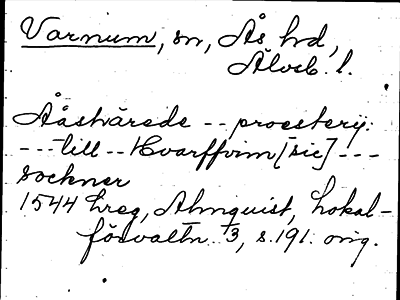 Varnum, sn, Ås hd,
Älvsb. l.
Aåshärede -- proestery:
--- till -- Hvarffvim [sic] ---
sockner
1544 hreg, Almquist, Lokal-
förvaltn. 3, s. 191. orig.